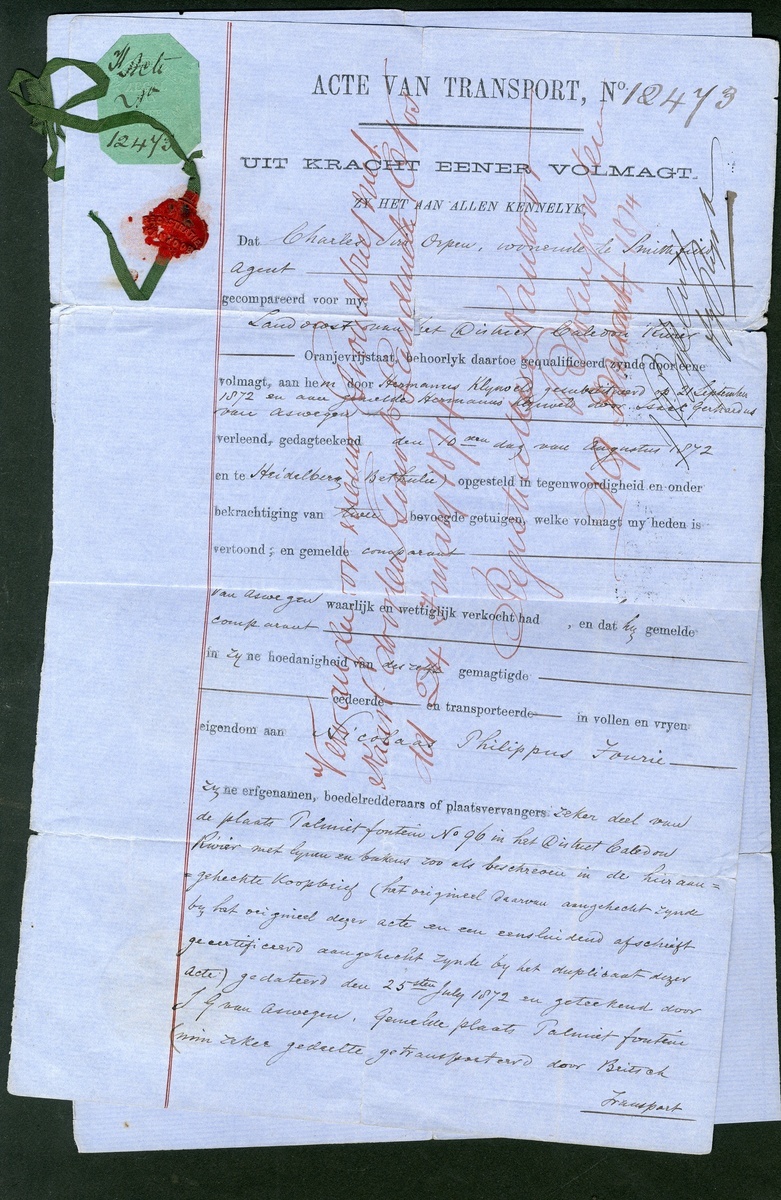 Acte
No
12473
ACTE VAN TRANSPORT, No. 12473
UIT KRACHT EENER VOLMAGT.
ZY HET AAN ALLEN KENNELYK,
Dat Charles Orpen, wonende te Smithfield
Agent
gecompareerd voor my
Landdrost van het District Caledon Rivier
Oranjevrijstaat, behoorlyk daartoe gequalificeerd zynde door eene
volmagt, aan hem door Hermanus gesubstitueerd op 21 September
1872 en aan gemelde Hermanus door Gerhardus
van Aswegen
verleend, gedagteekend den 10den dag van Augustus 1872
en te Heidelberg (Bethulie) opgesteld in tegenwoordigheid en onder
bekrachtiging van twee bevoegde getuigen, welke volmagt my heden is
vertoond; en gemelde comparant
van Aswegen waarlijk en wettiglijk verkocht had, en dat hy gemelde
comparant
in zyne hoedanigheid van gemagtigde
cedeerde en transporteerde in vollen en vryen
eigendom aan Nicolaas Philippus Fourie
zyne erfgenamen, boedelredderaars of plaatsvervangers: zeker deel van
de plaats Palmietfontein No 96 in het District Caledon
Rivier met lynen en bakens zoo als beschreven in de hieraan=
=gehechte Koopbrief (het origineel daarvan aangehecht zynde
by het origineel dezer acte en een eensluidend afschrift
gecertificeerd aangehecht zynde by het duplicaat dezer
acte) gedateerd den 25sten July 1872 en geteekend door
J G van Aswegen. Gemelde plaats Palmietfontein
(min zeker gedeelte getransporteerd door Britsch
Transport
Registratie Kantoor
Bloemfontein
1874